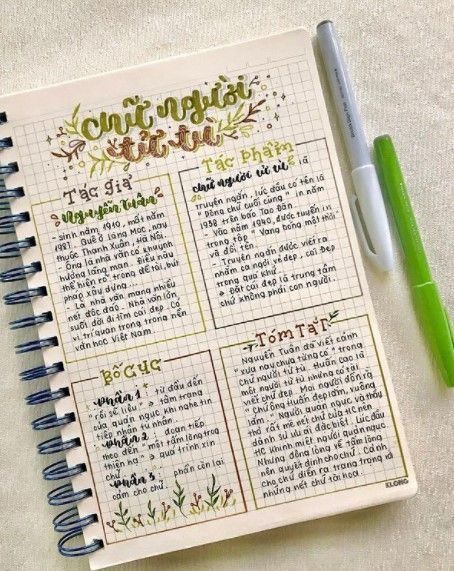 chữ người
tử tù
Tác giả
Nguyễn Tuân
- sinh năm 1910, mất năm
1987. Quê ở làng Mọc, nay
thuộc Thanh Xuân, Hà Nội.
- Ông là nhà văn có khuynh
hướng lãng mạn. Điều này
thể hiện rõ trong đề tài, bút
pháp xây dựng...
- Là nhà văn mang nhiều
nét độc đáo. Nhà văn lớn,
suốt đời đi tìm cái đẹp. Có
vị trí quan trọng trong nền
văn học Việt Nam.
Tác phẩm
chữ người tử tù là
truyện ngắn, lúc đầu có tên là
" Dòng chữ cuối cùng " in năm
1938 trên báo Tao Đàn
- Vào năm 1940, được tuyển in
trong tập " Vang bóng một thời "
và đổi tên
- Truyện ngắn được viết ra
nhằm ca ngợi vẻ đẹp, cái đẹp
trong quá khứ
→ Đặt cái đẹp là trung tâm
chứ không phải con người.
Bố cục
phần 1 : từ đầu đến
" rồi sẽ liệu " → tâm trạng
của quản ngục khi nghe tin
tiếp nhận tử nhân
phần 2 : đoạn tiếp
theo đến " một tấm lòng trong
thiên hạ " → quá trình xin
chữ
phần 3 : phần còn lại
cảm cho chữ.
Tóm Tắt
Nguyễn Tuân đã viết cảnh
" xưa nay chưa từng có " trong
chữ người tử tù. Huấn Cao là
một tử tù nhưng có tài
viết chữ đẹp. Mọi người đồn rằng
" Chữ ông Huấn đẹp lắm, vuông
lắm ". Người quản ngục và thầy
thơ rất mê nét chữ của HC nên
dành sự ưu ái đặc biệt. Lúc đầu
HC khinh miệt người quản ngục.
Nhưng động lòng về tấm lòng
nên quyết định cho chữ. Cảnh
cho chữ diễn ra trang trọng và
những nét chữ tài hoa.
KLONG